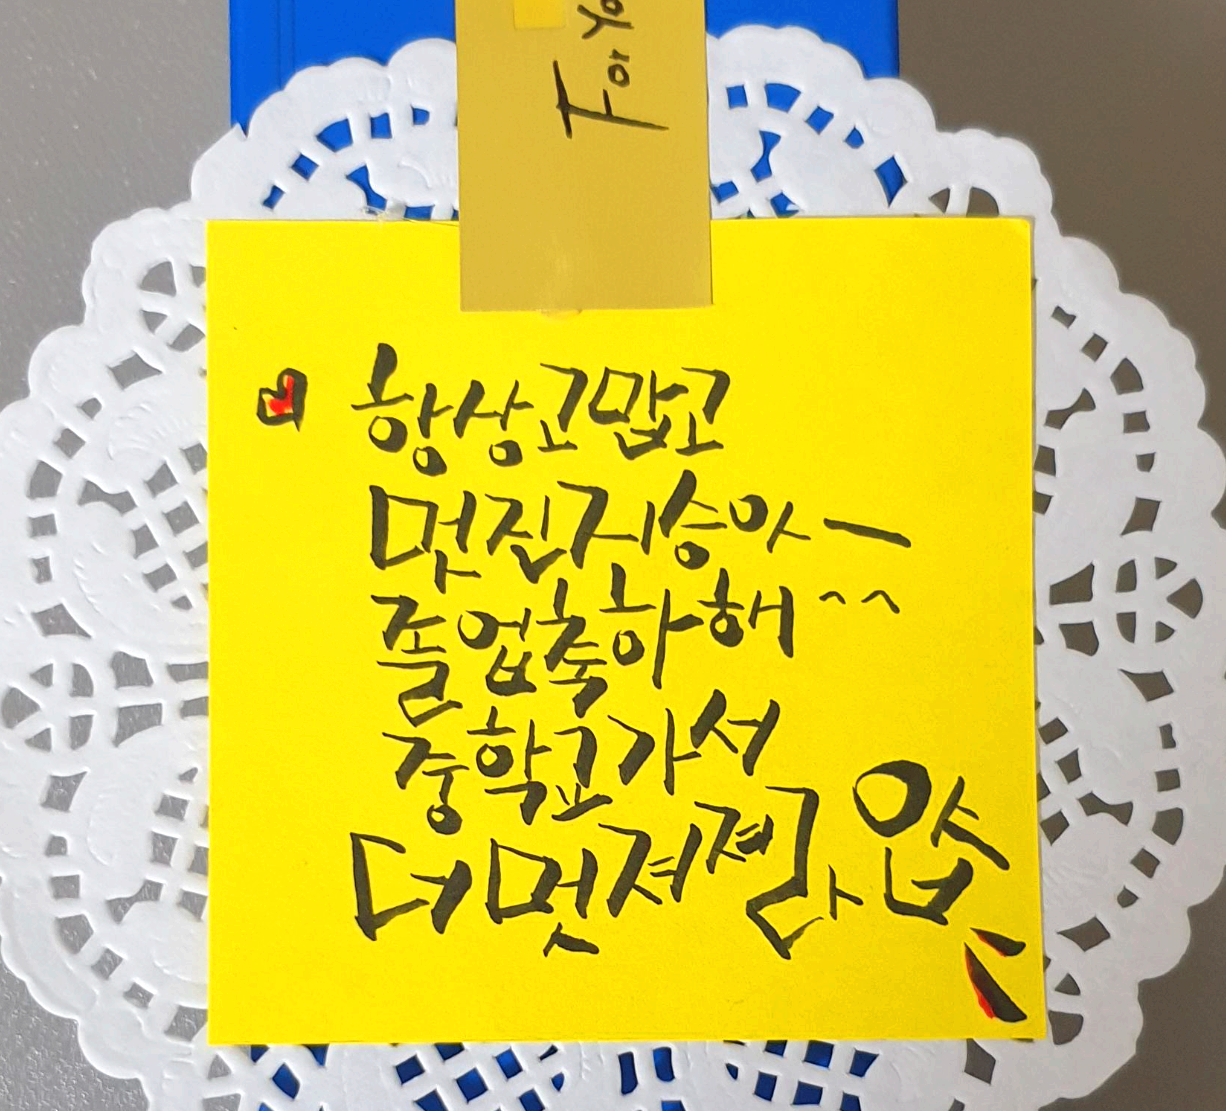 For Yo
항상 고맙고
멋진 지승아~
졸업 축하해^^
중학교 가서
더 멋져져라 얍